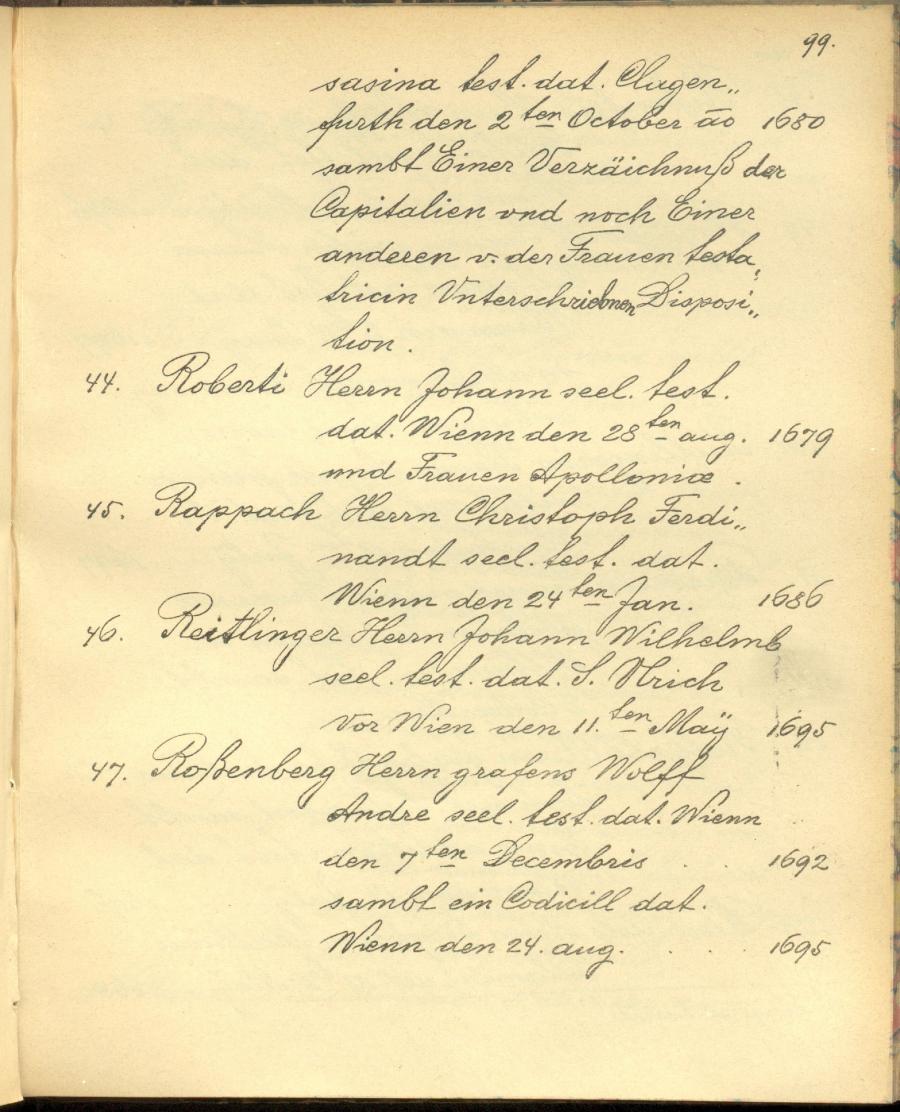 99.
sasina test. dat. Clagen„
furth den 2ten October āo 1680
sambt Einer Verzäichnuß der
Capitalien vnd noch Einer
anderen v. der Frauen testa„
tricin Vnterschriebnen Disposi„
tion.
44. Roberti Herrn Johann seel. test.
dat. Wienn den 28ten aug. 1679
und Frauen Apolloniæ .
45. Rappach Herrn Christoph Ferdi„
nandt seel. test. dat.
Wienn den 24ten Jan. 1686
46. Reitlinger Herrn Johann Wilhelmb
seel. test. dat. S. Vlrich
vor Wien den 11.ten Maÿ 1695
47. Roßenberg Herrn grafens Wolff
Andre seel. test. dat. Wienn
den 7ten Decembris . . 1692
sambt ein Codicill dat.
Wienn den 24. aug. . . . . 1695